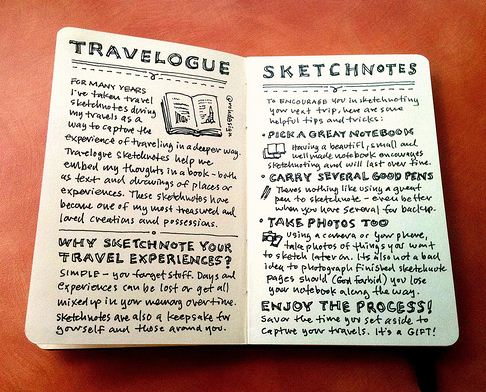 TRAVELOGUE
FOR MANY YEARS
I've taken travel
sketchnotes during
my travels as a
way to capture the
experience of traveling in a deeper way.
Travelogue sketchnotes help me
embed my thoughts in a book – both
as text and drawings of places or
experiences. These sketchnotes have
become one of my most treasured and
loved creations and possessions.
@rohdesign
WHY SKETCHNOTE YOUR
TRAVEL EXPERIENCES?
SIMPLE – you forget stuff. Days and
experiences can be lost or get all
mixed up in your memory overtime.
Sketchnotes are also a keepsake for
yourself and those around you.
SKETCHNOTES
TO ENCOURAGE you in sketchnoting
your next trip, here are some
helpful tips and tricks:
• PICK A GREAT NOTEBOOK
Having a beautiful, small and
well made notebook encourages
sketchnoting and will last over time.
• CARRY SEVERAL GOOD PENS
Theres nothing like using a great
pen to sketchnote – even better
when you have several for backup.
• TAKE PHOTOS TOO
Using a camera or your phone,
take photos of things you want
to sketch later on. Its also not a bad
idea to photograph finished sketchnote
pages should (God forbid) you lose
your notebook along the way.
ENJOY THE PROCESS!
Savor the time you set aside to
capture your travels. It's a GIFT!